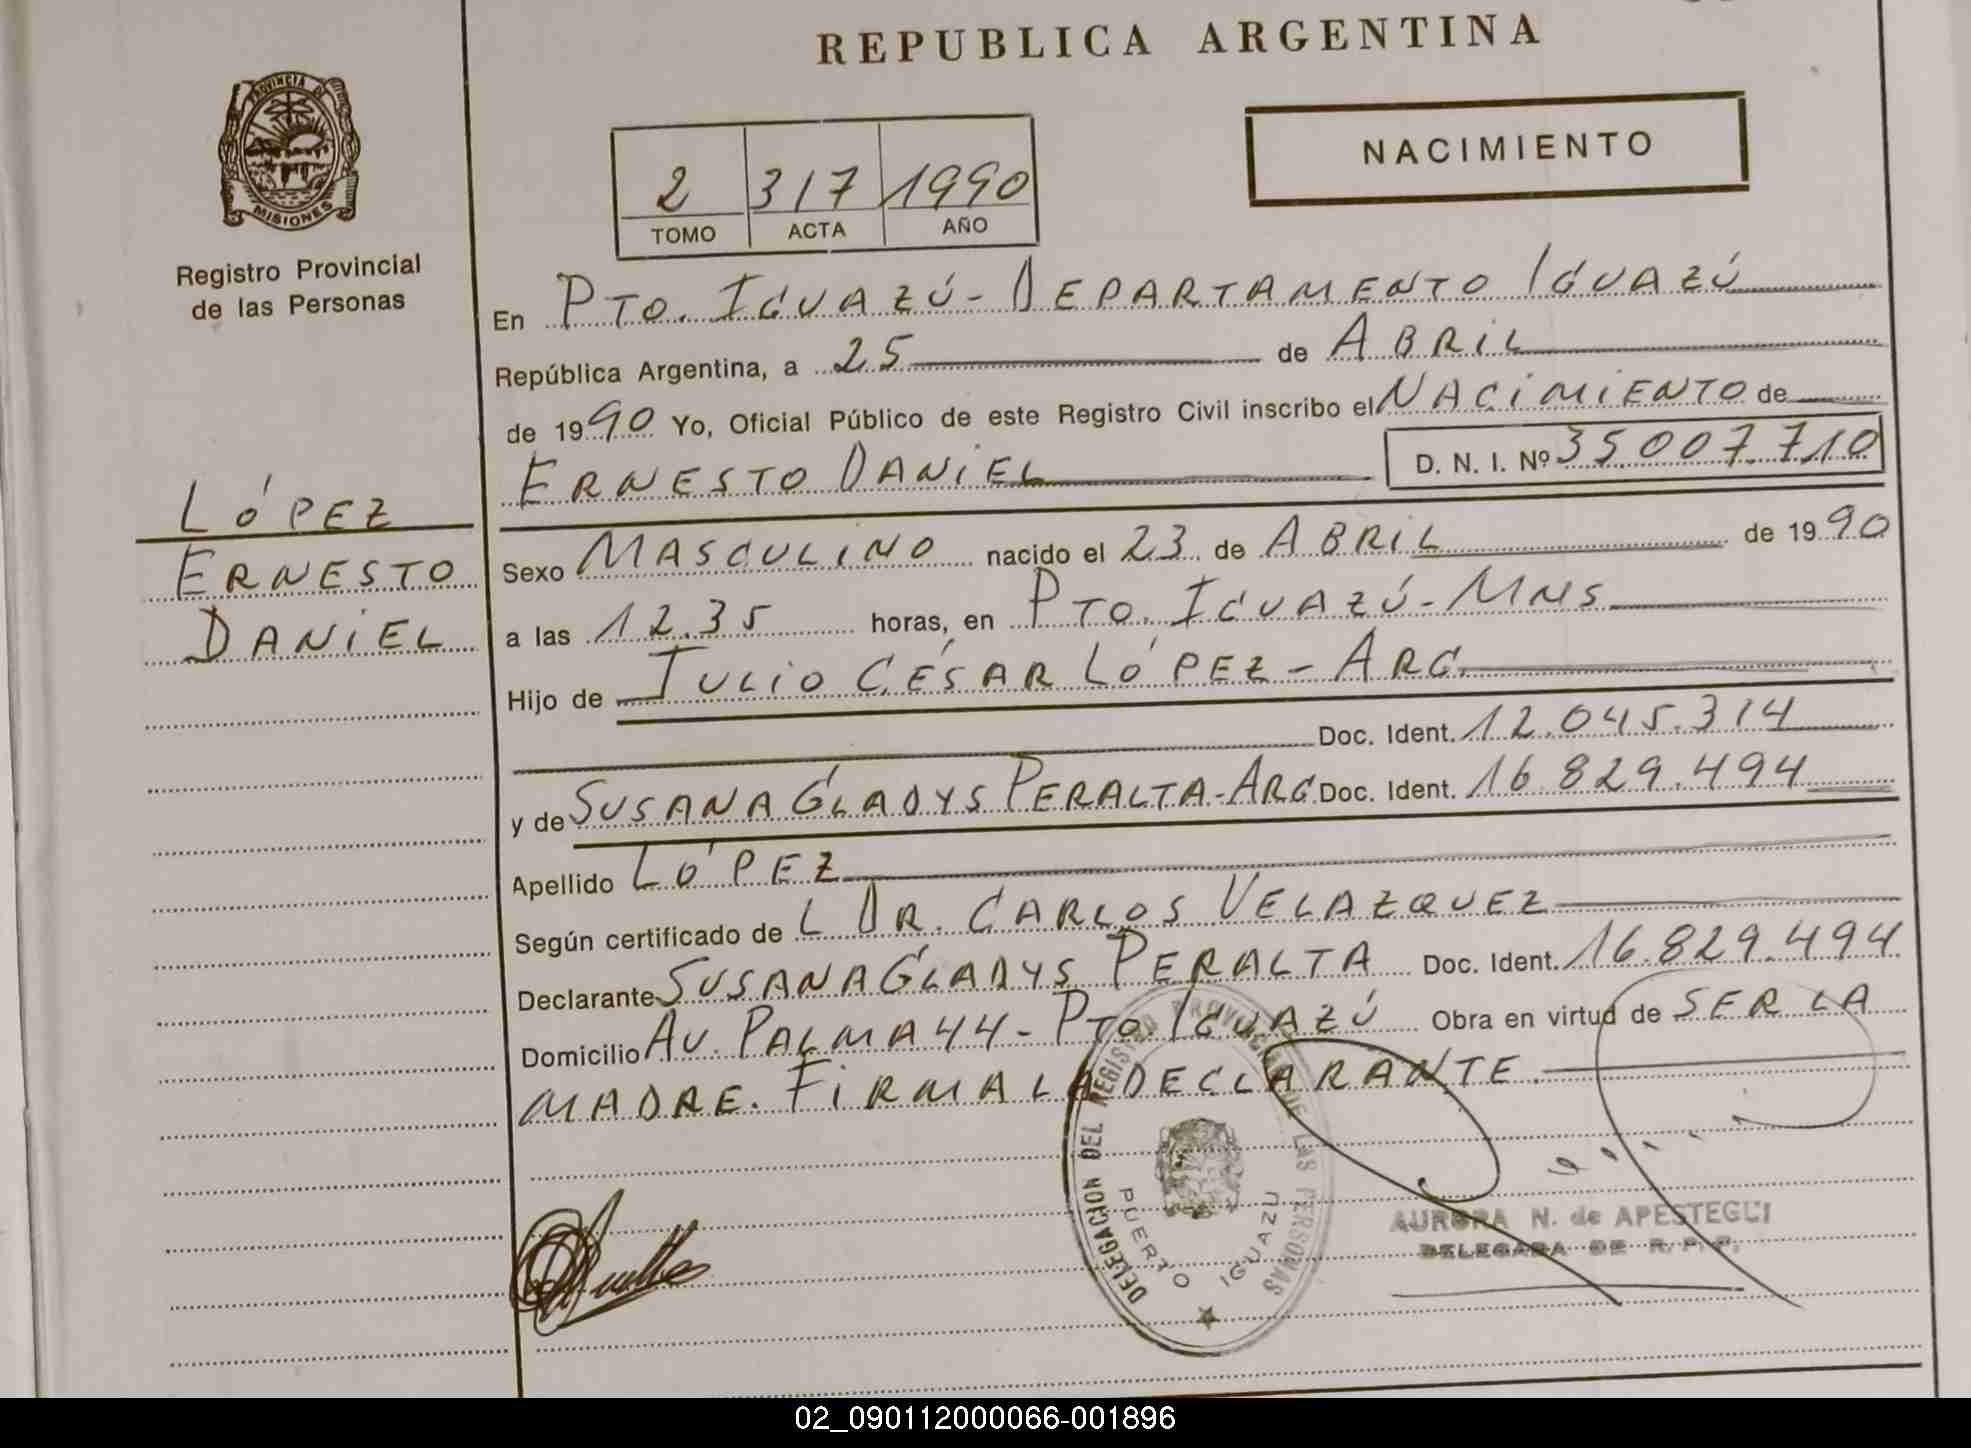 REPUBLICA ARGENTINA
PROVINCIA DE
MISIONES
Registro Provincial
de las Personas
NACIMIENTO
2 317 1990
TOMO ACTA AÑO
En PTO. IGUAZÚ - DEPARTAMENTO IGUAZÚ
República Argentina, a 25 de ABRIL
de 1990 Yo, Oficial Público de este Registro Civil inscribo el NACIMIENTO de
ERNESTO DANIEL D. N. I. Nº 35.007.710
LÓPEZ
ERNESTO
DANIEL
Sexo MASCULINO nacido el 23 de ABRIL de 1990
a las 12.35 horas, en PTO. IGUAZÚ - MNS
Hijo de JULIO CÉSAR LÓPEZ - ARG.
Doc. Ident. 12.045.314
y de SUSANA GLADYS PERALTA - ARG. Doc. Ident. 16.829.494
Apellido LÓPEZ
Según certificado de L DR. CARLOS VELAZQUEZ
Declarante SUSANA GLADYS PERALTA Doc. Ident. 16.829.494
Domicilio AV. PALMA 44 - PTO. IGUAZÚ Obra en virtud de SER LA
MADRE. FIRMA LA DECLARANTE.
DELEGACION DEL REGISTRO PROVINCIAL DE LAS PERSONAS
PUERTO IGUAZU
AURORA N. de APESTEGUI
DELEGADA DE R. P. P.
02_090112000066-001896